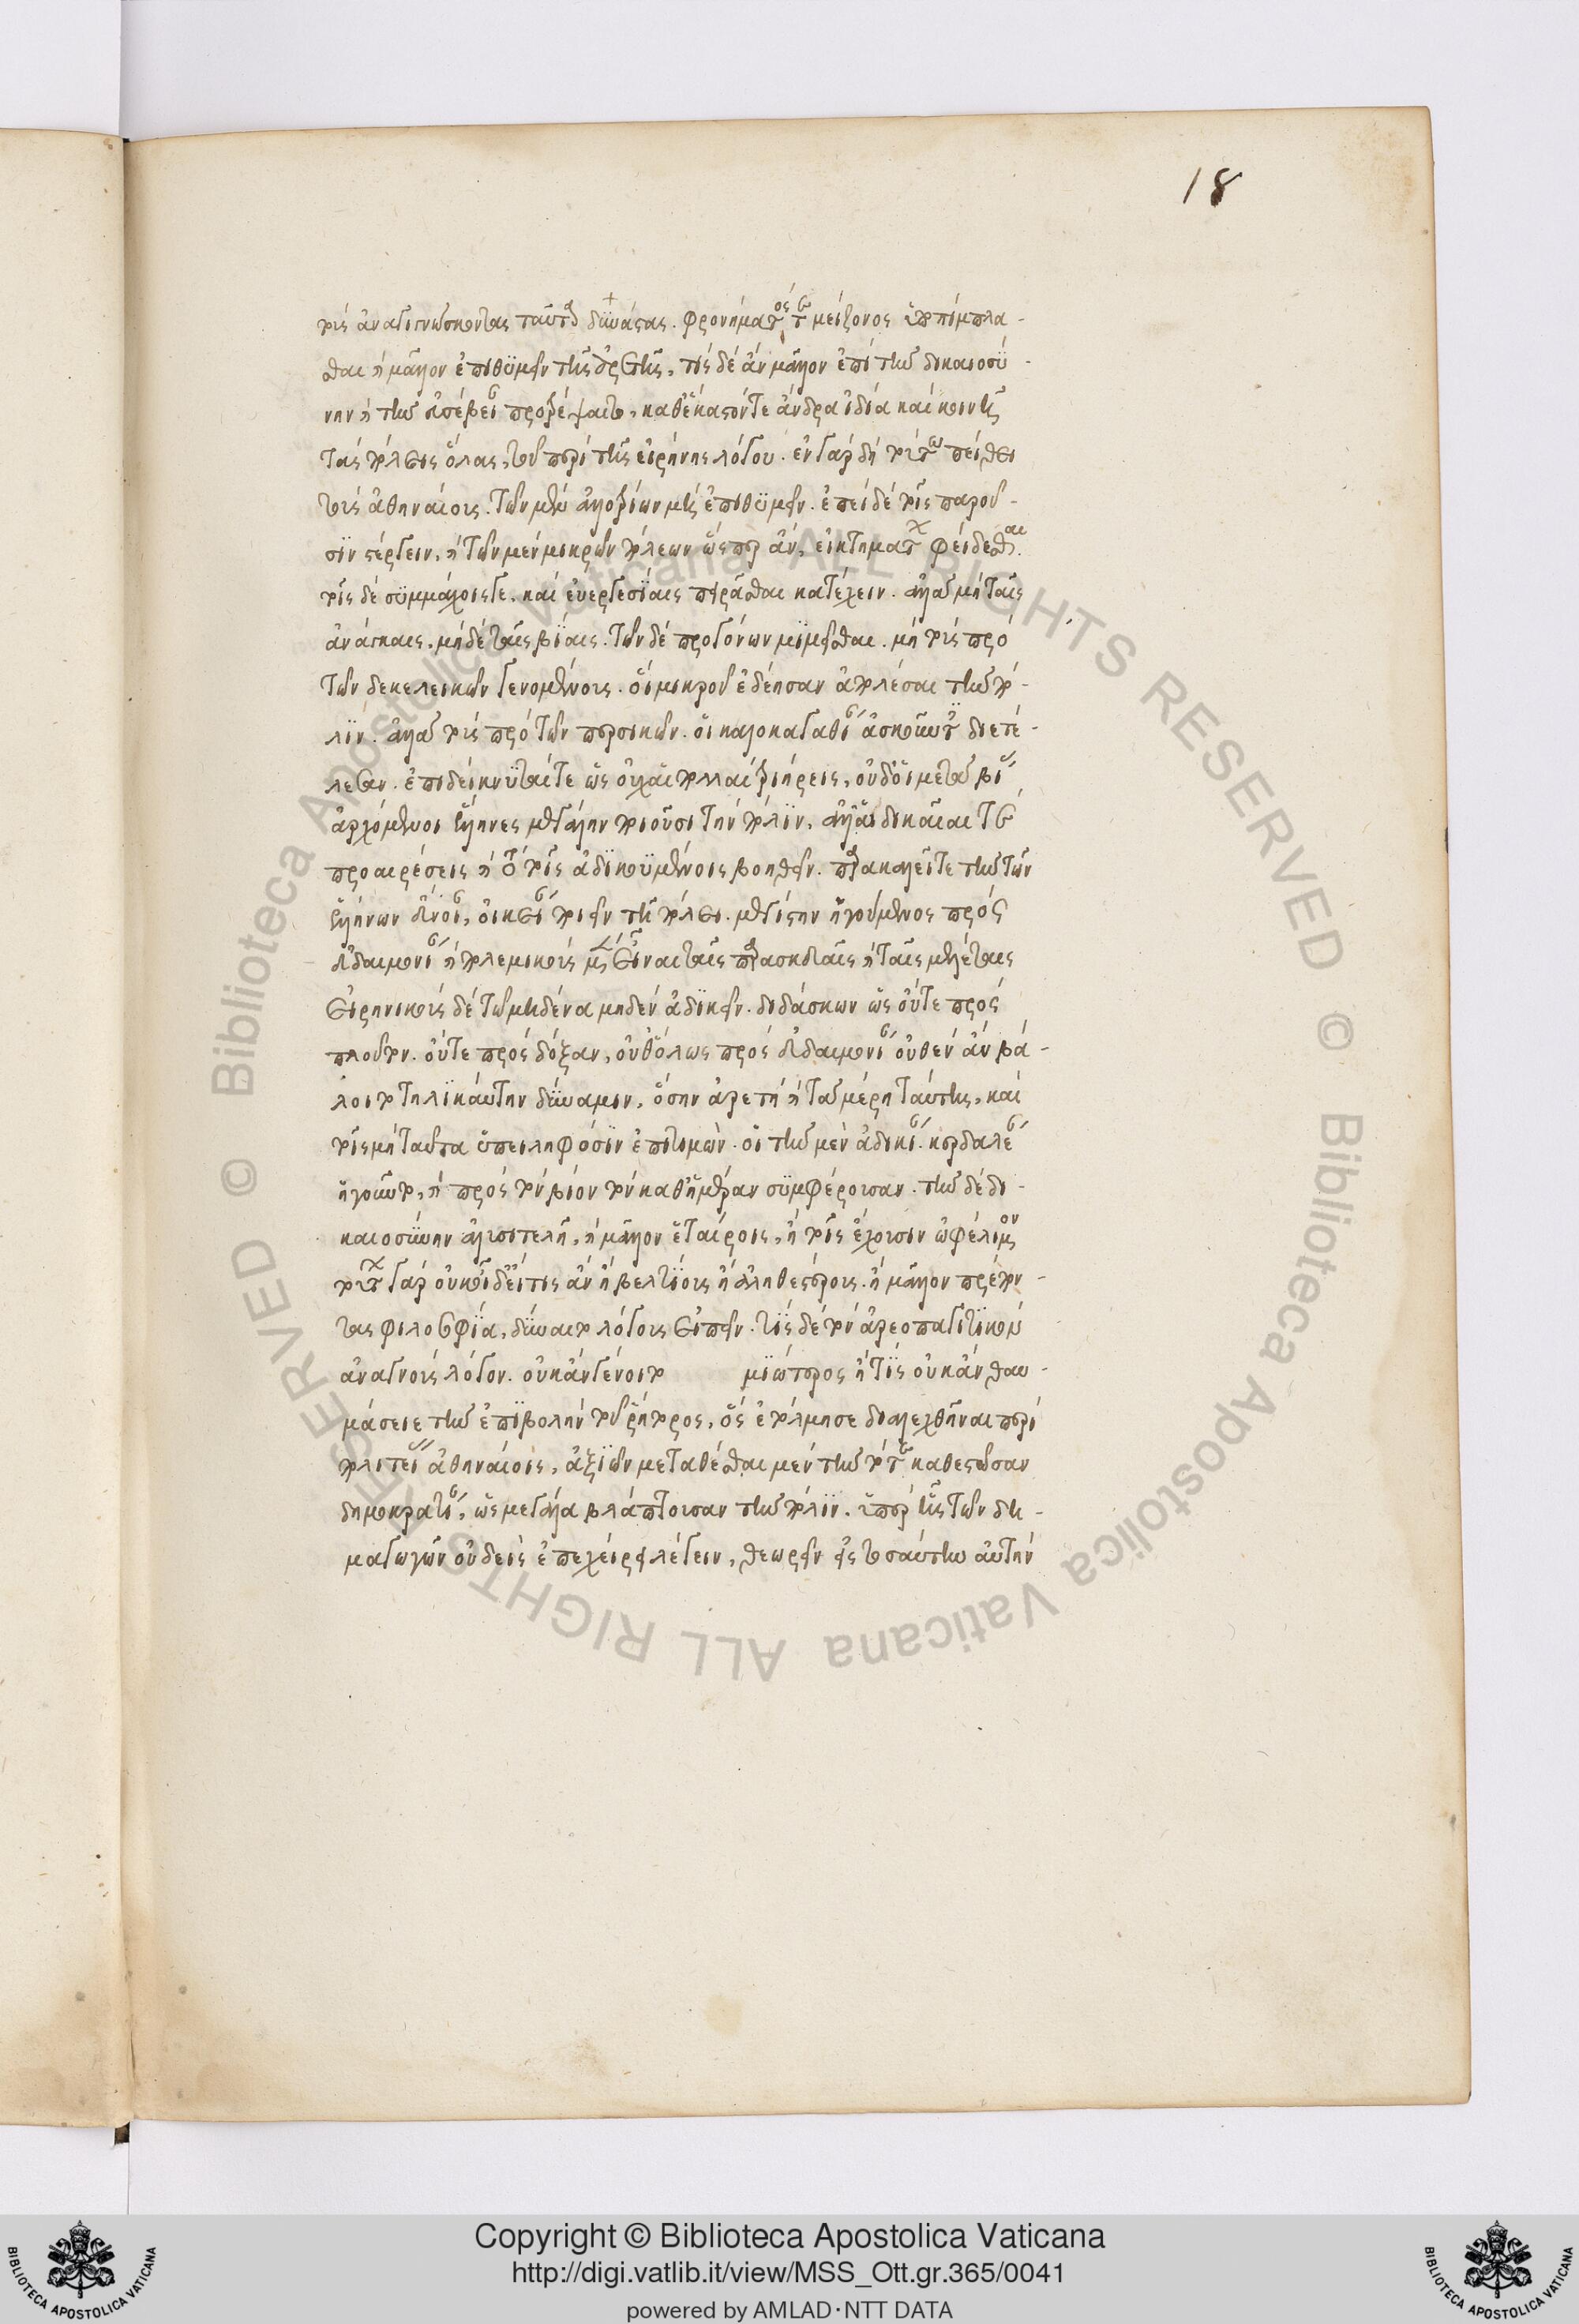 τοὺς ἀναγινώσκοντας ταῦτα δυνάστας. φρονήματός τε μείζονος ὑποπίμπλα-
σθαι καὶ μᾶλλον ἐπιθυμεῖν τῆς ἀρετῆς, τίς δὲ ἂν μᾶλλον ἐπὶ τὴν δικαιοσύ-
νην καὶ τὴν εὐσέβειαν προτρέψαιτο, καθ' ἕκαστόν τε ἄνδρα ἰδία καὶ κοινῆ
τὰς πόλεις ὅλας, τοῦ περὶ τῆς εἰρήνης λόγου. ἐν γὰρ δὴ τούτω πείθει
τοὺς ἀθηναίους. τῶν μὲν ἀλλοτρίων μὴ ἐπιθυμεῖν. ἐπεὶ δὲ τοῖς παροῦ-
σιν στέργειν, καὶ τῶν μὲν μικρῶν πόλεων ὥσπερ ἂν, εἰ κτημάτων φείδεσθαι.
τοῖς δὲ συμμάχοις τε. καὶ εὐεργεσίαις πειρᾶσθαι κατέχειν. ἀλλὰ μὴ ταῖς
ἀνάγκαις. μηδὲ ταῖς βίαις. τῶν δὲ προγόνων μιμεῖσθαι. μὴ τοὺς πρὸ
τῶν δεκελεικῶν γενομένους. οἳ μικροῦ ἐδέησαν ἀπολέσαι τὴν πό-
λιν. ἀλλὰ τοὺς πρὸ τῶν περσικῶν. οἳ καλοκαγαθίαν ἀσκοῦντες διετέ-
λεσαν. ἐπιδείκνυταί τε ὡς οὐχ αἱ πολλαὶ τριήρεις, οὐδ' οἱ μετὰ βίας
ἀρχόμενοι ἕλληνες μεγάλην ποιοῦσι τὴν πόλιν, ἀλλ' αἱ δικαῖαι τε
προαιρέσεις καὶ τὸ τοῖς ἀδικουμένοις βοηθεῖν. παρακαλεῖ τε τὴν τῶν
ἑλλήνων εὔνοιαν, οἰκείαν ποιεῖν τῆ πόλει. μεγίστην ἡγούμενος πρὸς
εὐδαιμονίαν καὶ πολεμικοὺς μὲν εἶναι ταῖς παρασκευαῖς καὶ ταῖς μελέταις
εἰρηνικοὺς δὲ τῶ μηδένα μηδὲν ἀδικεῖν. διδάσκων ὡς οὔτε πρὸς
πλοῦτον. οὔτε πρὸς δόξαν, οὔθ' ὅλως πρὸς εὐδαιμονίαν οὐθὲν ἂν βά-
λοιτο τηλικαύτην δύναμιν, ὅσην ἀρετὴ καὶ τὰ μέρη ταύτης, καὶ
τοῖς μὴ ταῦτα ὑπειληφόσιν ἐπιτιμῶν. οἳ τὴν μὲν ἀδικίαν. κερδαλέαν
ἡγοῦντο, καὶ πρὸς τὸν βίον τὸν καθ' ἡμέραν συμφέρουσαν. τὴν δὲ δι-
καιοσύνην ἀλυσιτελῆ, καὶ μᾶλλον ἑταίροις, ἢ τοῖς ἔχουσιν ὠφέλιμον
τούτων γὰρ οὐκ οἶδ' εἴ τις ἂν ἢ βελτίους ἢ ἀληθεστέρους. ἢ μᾶλλον πρέπον-
τας φιλοσοφία, δύναιτο λόγους εἰπεῖν. τίς δὲ τὸν ἀρεοπαγιτικὸν
ἀναγνοὺς λόγον. οὐκ ἂν γένοιτο μιώτερος ἢ τίς οὐκ ἂν θαυ-
μάσειε τὴν ἐπιβολὴν τοῦ ῥήτορος, ὃς ἐτόλμησε διαλεχθῆναι περὶ
πολιτείας ἀθηναίοις, ἀξιῶν μεταθέσθαι μὲν τὴν τότε καθεστῶσαν
δημοκρατίαν, ὡς μεγάλα βλάπτουσαν τὴν πόλιν. ὑπὲρ ἧς τῶν δη-
μαγωγῶν οὐδεὶς ἐπεχείρει λέγειν, θεωρεῖν εἰς τοσαύτην αὐτὴν
18
Copyright © Biblioteca Apostolica Vaticana
http://digi.vatlib.it/view/MSS_Ott.gr.365/0041
powered by AMLAD·NTT DATA
BIBLIOTECA APOSTOLICA VATICANA
BIBLIOTECA APOSTOLICA VATICANA
Biblioteca Apostolica Vaticana ALL RIGHTS RESERVED ©
Biblioteca Apostolica Vaticana ALL RIGHTS RESERVED ©